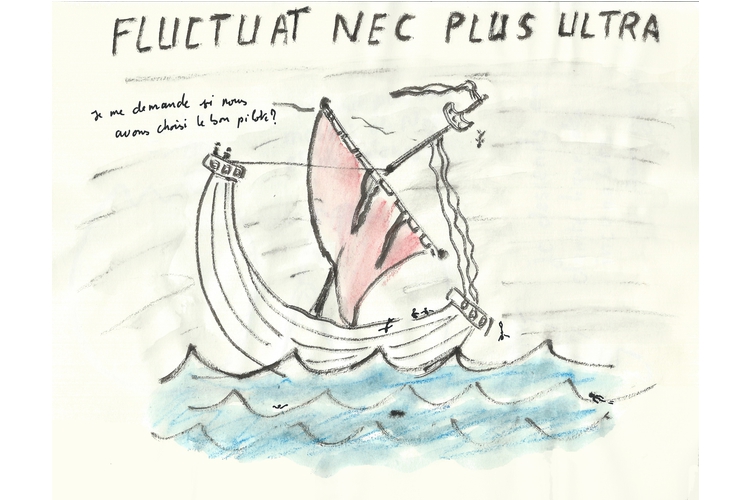 FLUCTUAT NEC PLUS ULTRA
Je me demande si nous
avons choisi le bon pilote?